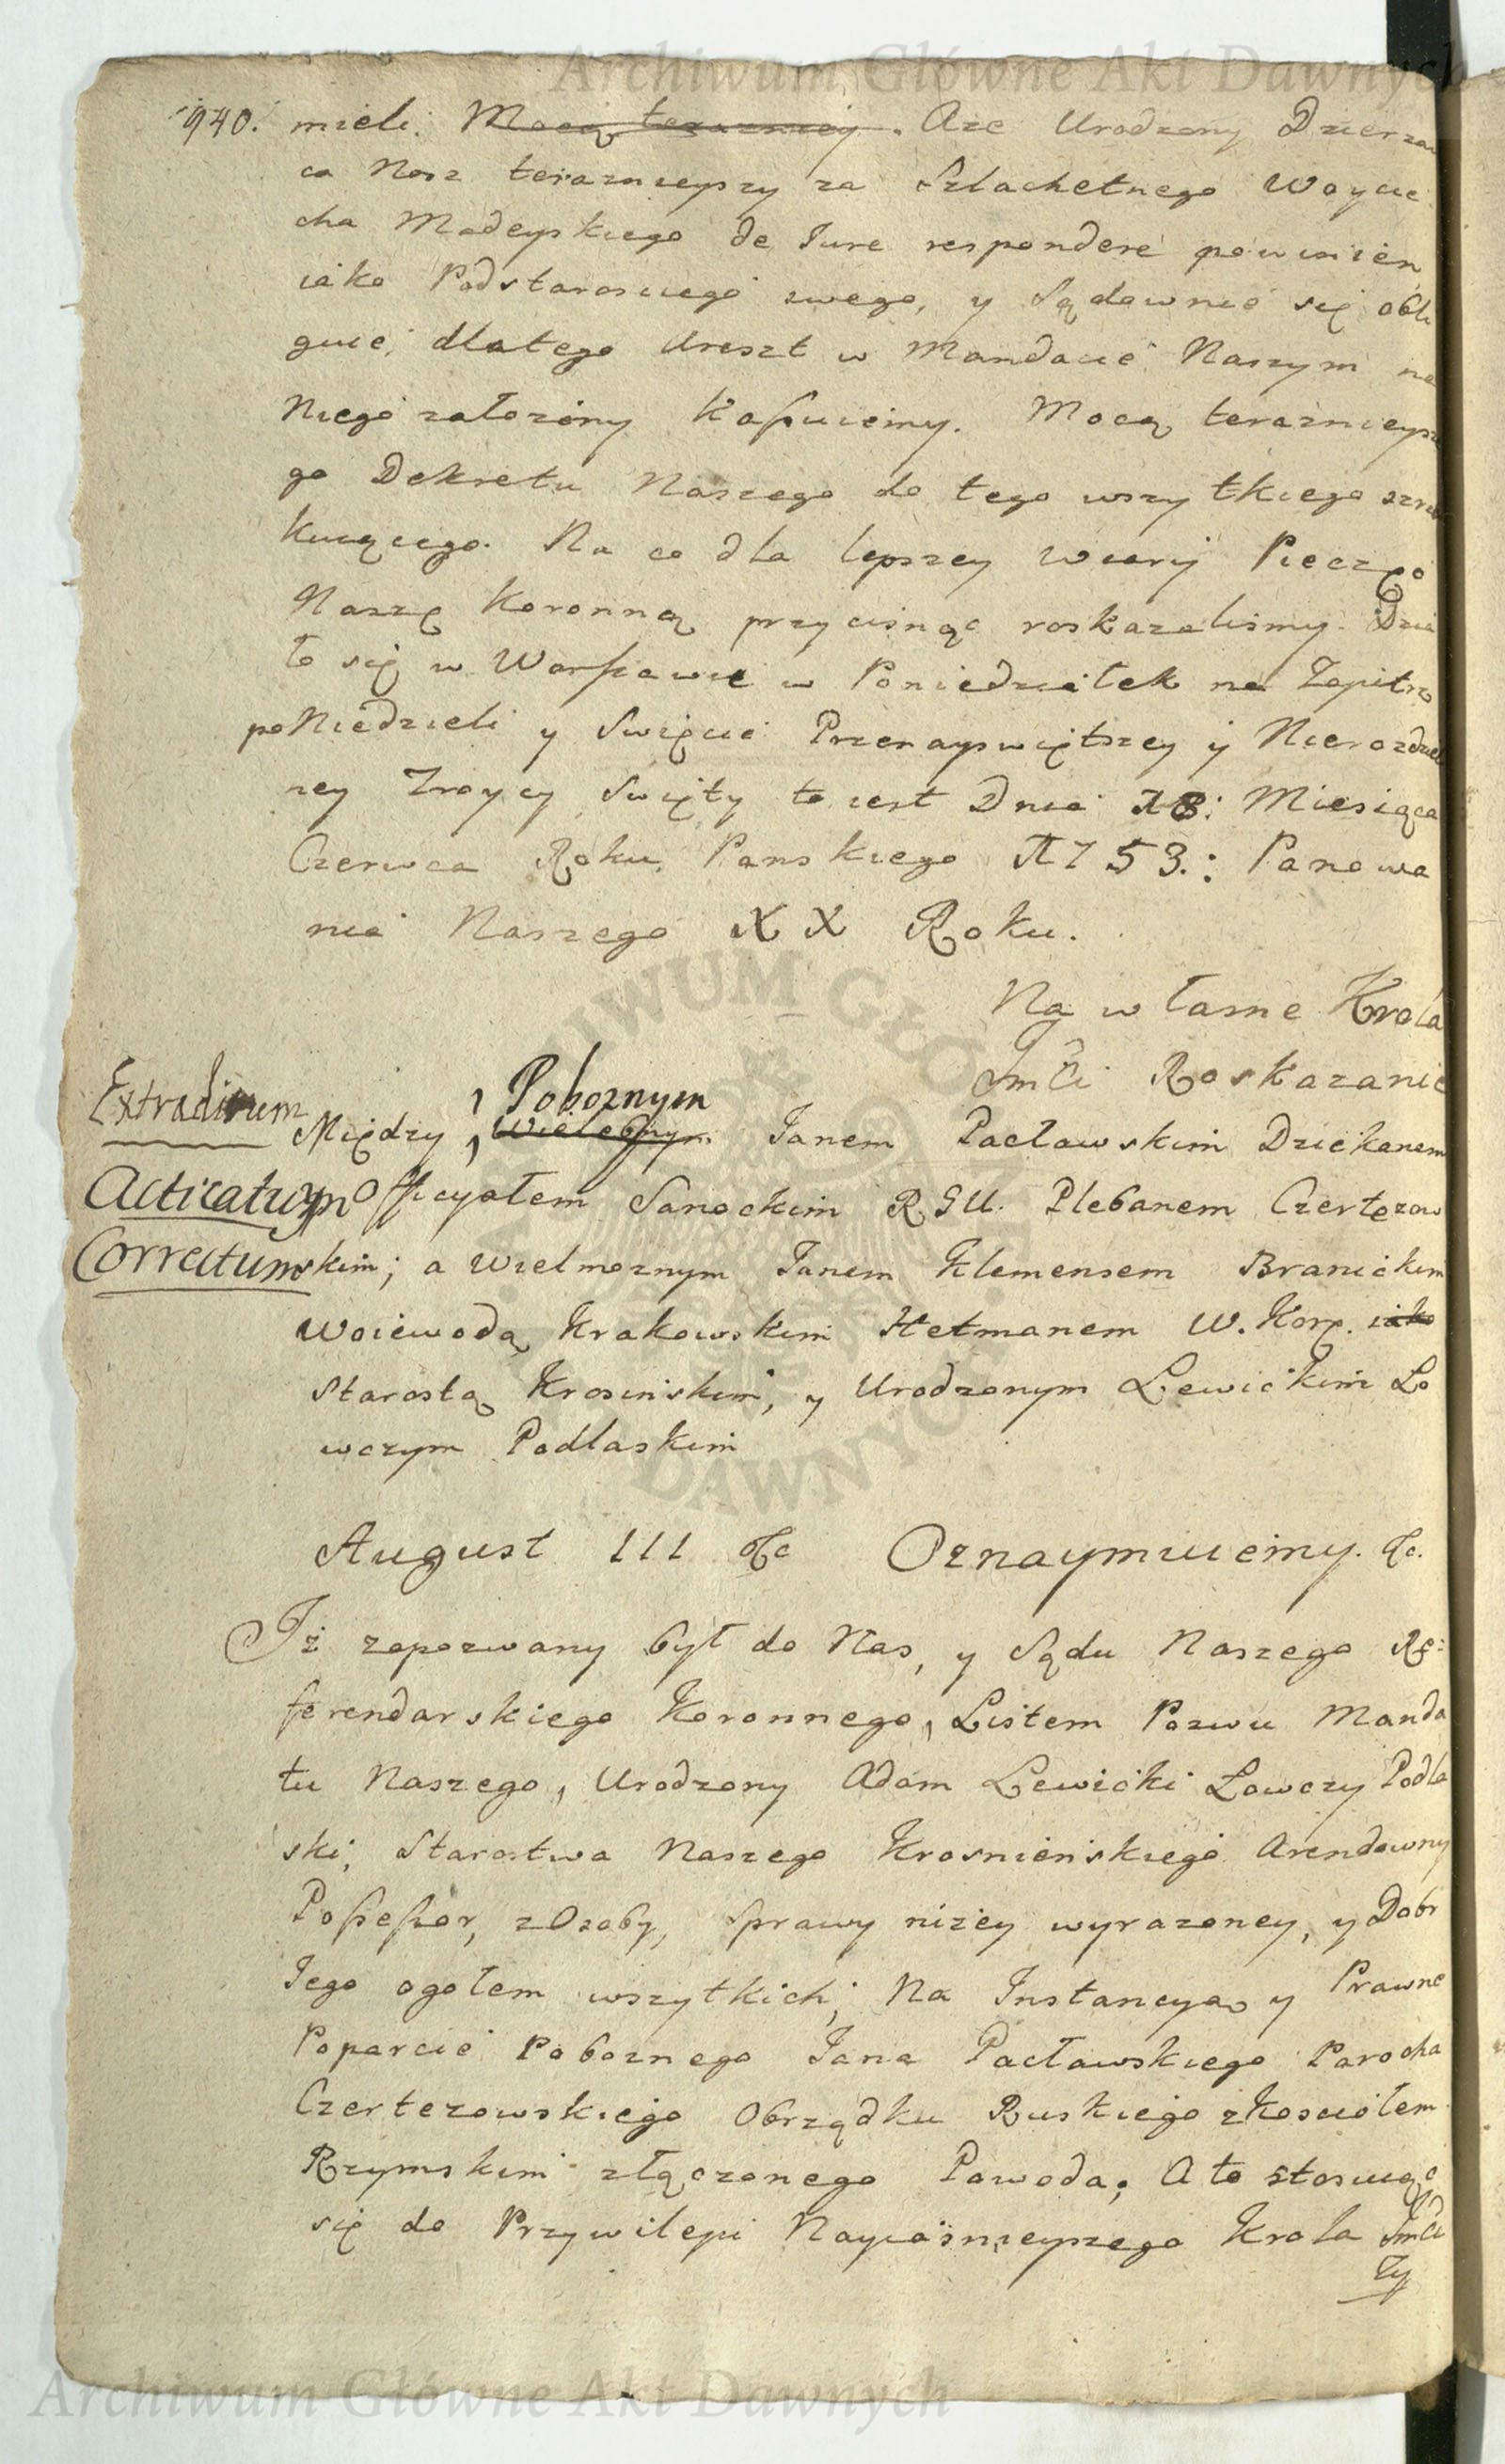 Archiwum Główne Akt Dawnych
940. mieli. Mocą teraznieyszey. Aże Urodzony Dzierzaw
ca Nasz teraznieyszy za Szlachetnego Woycie
cha Madeyskiego de Jure respondere powinien
iako Podstarosciego swego, y Sądownie się obli
guie, dlatego Areszt w Mandacie Naszym na
Niego założony Kassuiemy. Mocą teraznieysze
go Dekretu Naszego do tego wszytkiego
kuiącego. Na co dla lepszey wiary Pieczęć
Naszę Koronną przycisnąc roskazalismy. Dzia
ło się w Warszawie w Poniedziałek na Zaiutrz
po Niedzieli y Swięcie Przenayswiętszey y Nierozdziel
ney Troycy Swięty to iest Dnia 18: Miesiąca
Czerwca Roku Panskiego 1753.: Panowa
nia Naszego XX Roku.
Na własne Krola
Jmci Roskazanie
Extraditum Między Wielebnym Poboznym Janem Pacławskim Dziekanem
Acticatum Officyałem Sanockim R.G.U. Plebanem Czertezow
Correctum skim; a Wielmoznym Janem Klemensem Branickim
Woiewodą Krakowskim Hetmanem W. Kor. iako
Starostą Krosinskim, y Urodzonym Lewickim Ło
wczym Podlaskim
August III &c Oznaymuiemy. &c.
Iż zapozwany był do Nas, y Sądu Naszego Re=
ferendarskiego Koronnego, Listem Pozwu Manda
tu Naszego, Urodzony Adam Lewicki Łowczy Podla
ski, Starostwa Naszego Krosnienskiego Arendowny
Possessor, z Osoby, Sprawy niżey wyrazoney, y Dobr
Jego ogołem wszytkich, Na Instancya y Prawne
Poparcie Poboznego Jana Pacławskiego Parocha
Czertezowskiego Obrządku Ruskiego z Kosciołem
Rzymskim złączonego Powoda; A to stosuiąc
się do Przywileiu Nayiasnieyszego Krola Jmci
Zy
Archiwum Główne Akt Dawnych